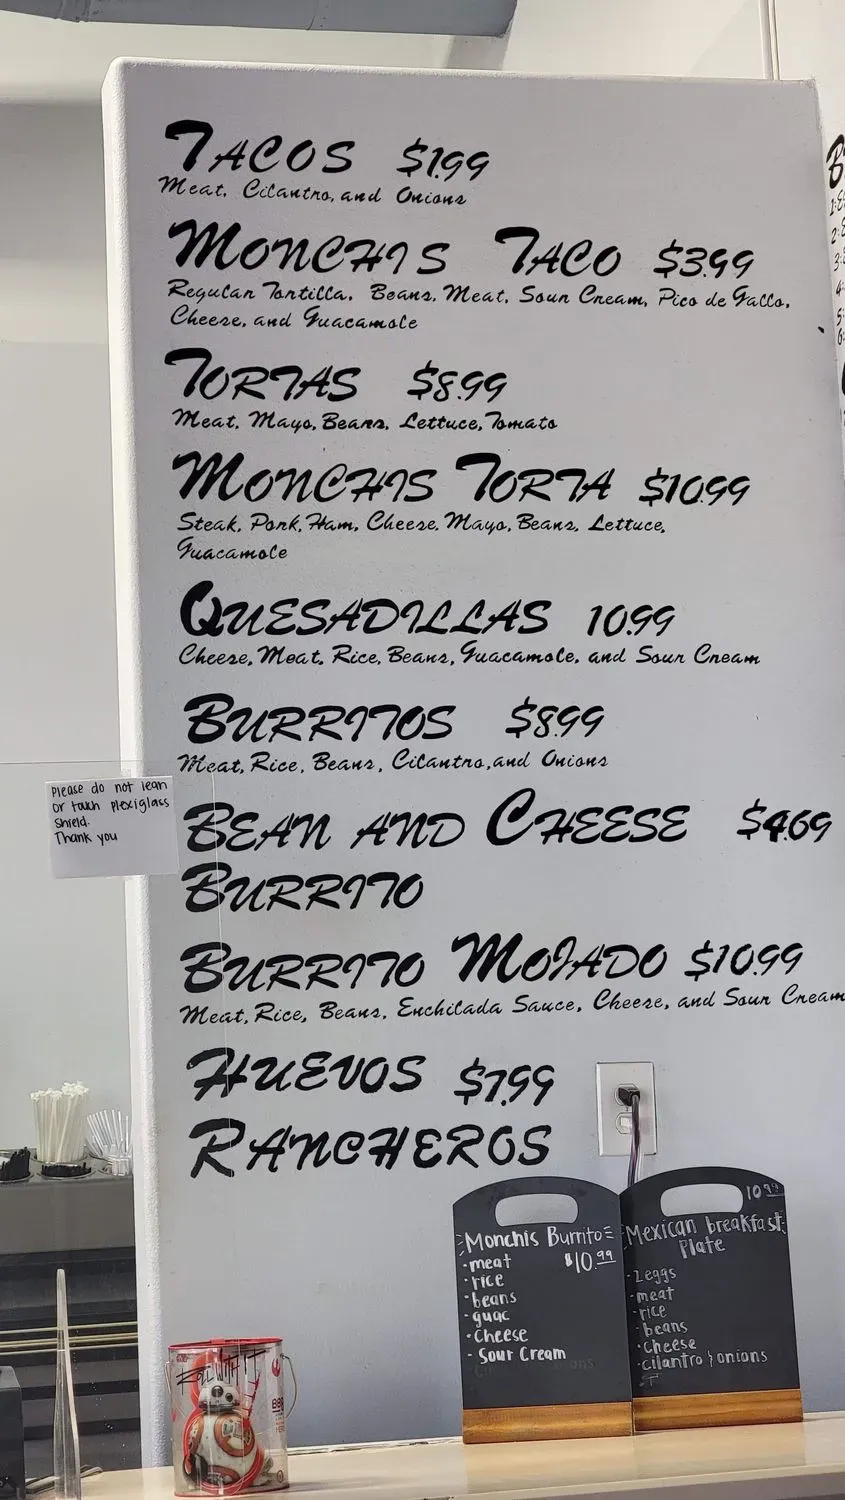 TACOS $1.99
Meat, Cilantro, and Onions
MONCHIS TACO $3.99
Regular Tortilla, Beans, Meat, Sour Cream, Pico de Gallo,
Cheese, and Guacamole
TORTAS $8.99
Meat, Mayo, Beans, Lettuce, Tomato
MONCHIS TORTA $10.99
Steak, Pork, Ham, Cheese, Mayo, Beans, Lettuce,
Guacamole
QUESADILLAS 10.99
Cheese, Meat, Rice, Beans, Guacamole, and Sour Cream
BURRITOS $8.99
Meat, Rice, Beans, Cilantro, and Onions
Please do not lean
or touch plexiglass
shield.
Thank you
BEAN AND CHEESE $4.69
BURRITO
BURRITO MOJADO $10.99
Meat, Rice, Beans, Enchilada Sauce, Cheese, and Sour Cream
HUEVOS $7.99
RANCHEROS
Monchis Burrito
$10.99
• meat
• rice
• beans
- guac
• Cheese
- Sour Cream
10.99
Mexican breakfast
Plate
- 2 eggs
- meat
- rice
- beans
• Cheese
- cilantro & onions
ROLL WITH IT